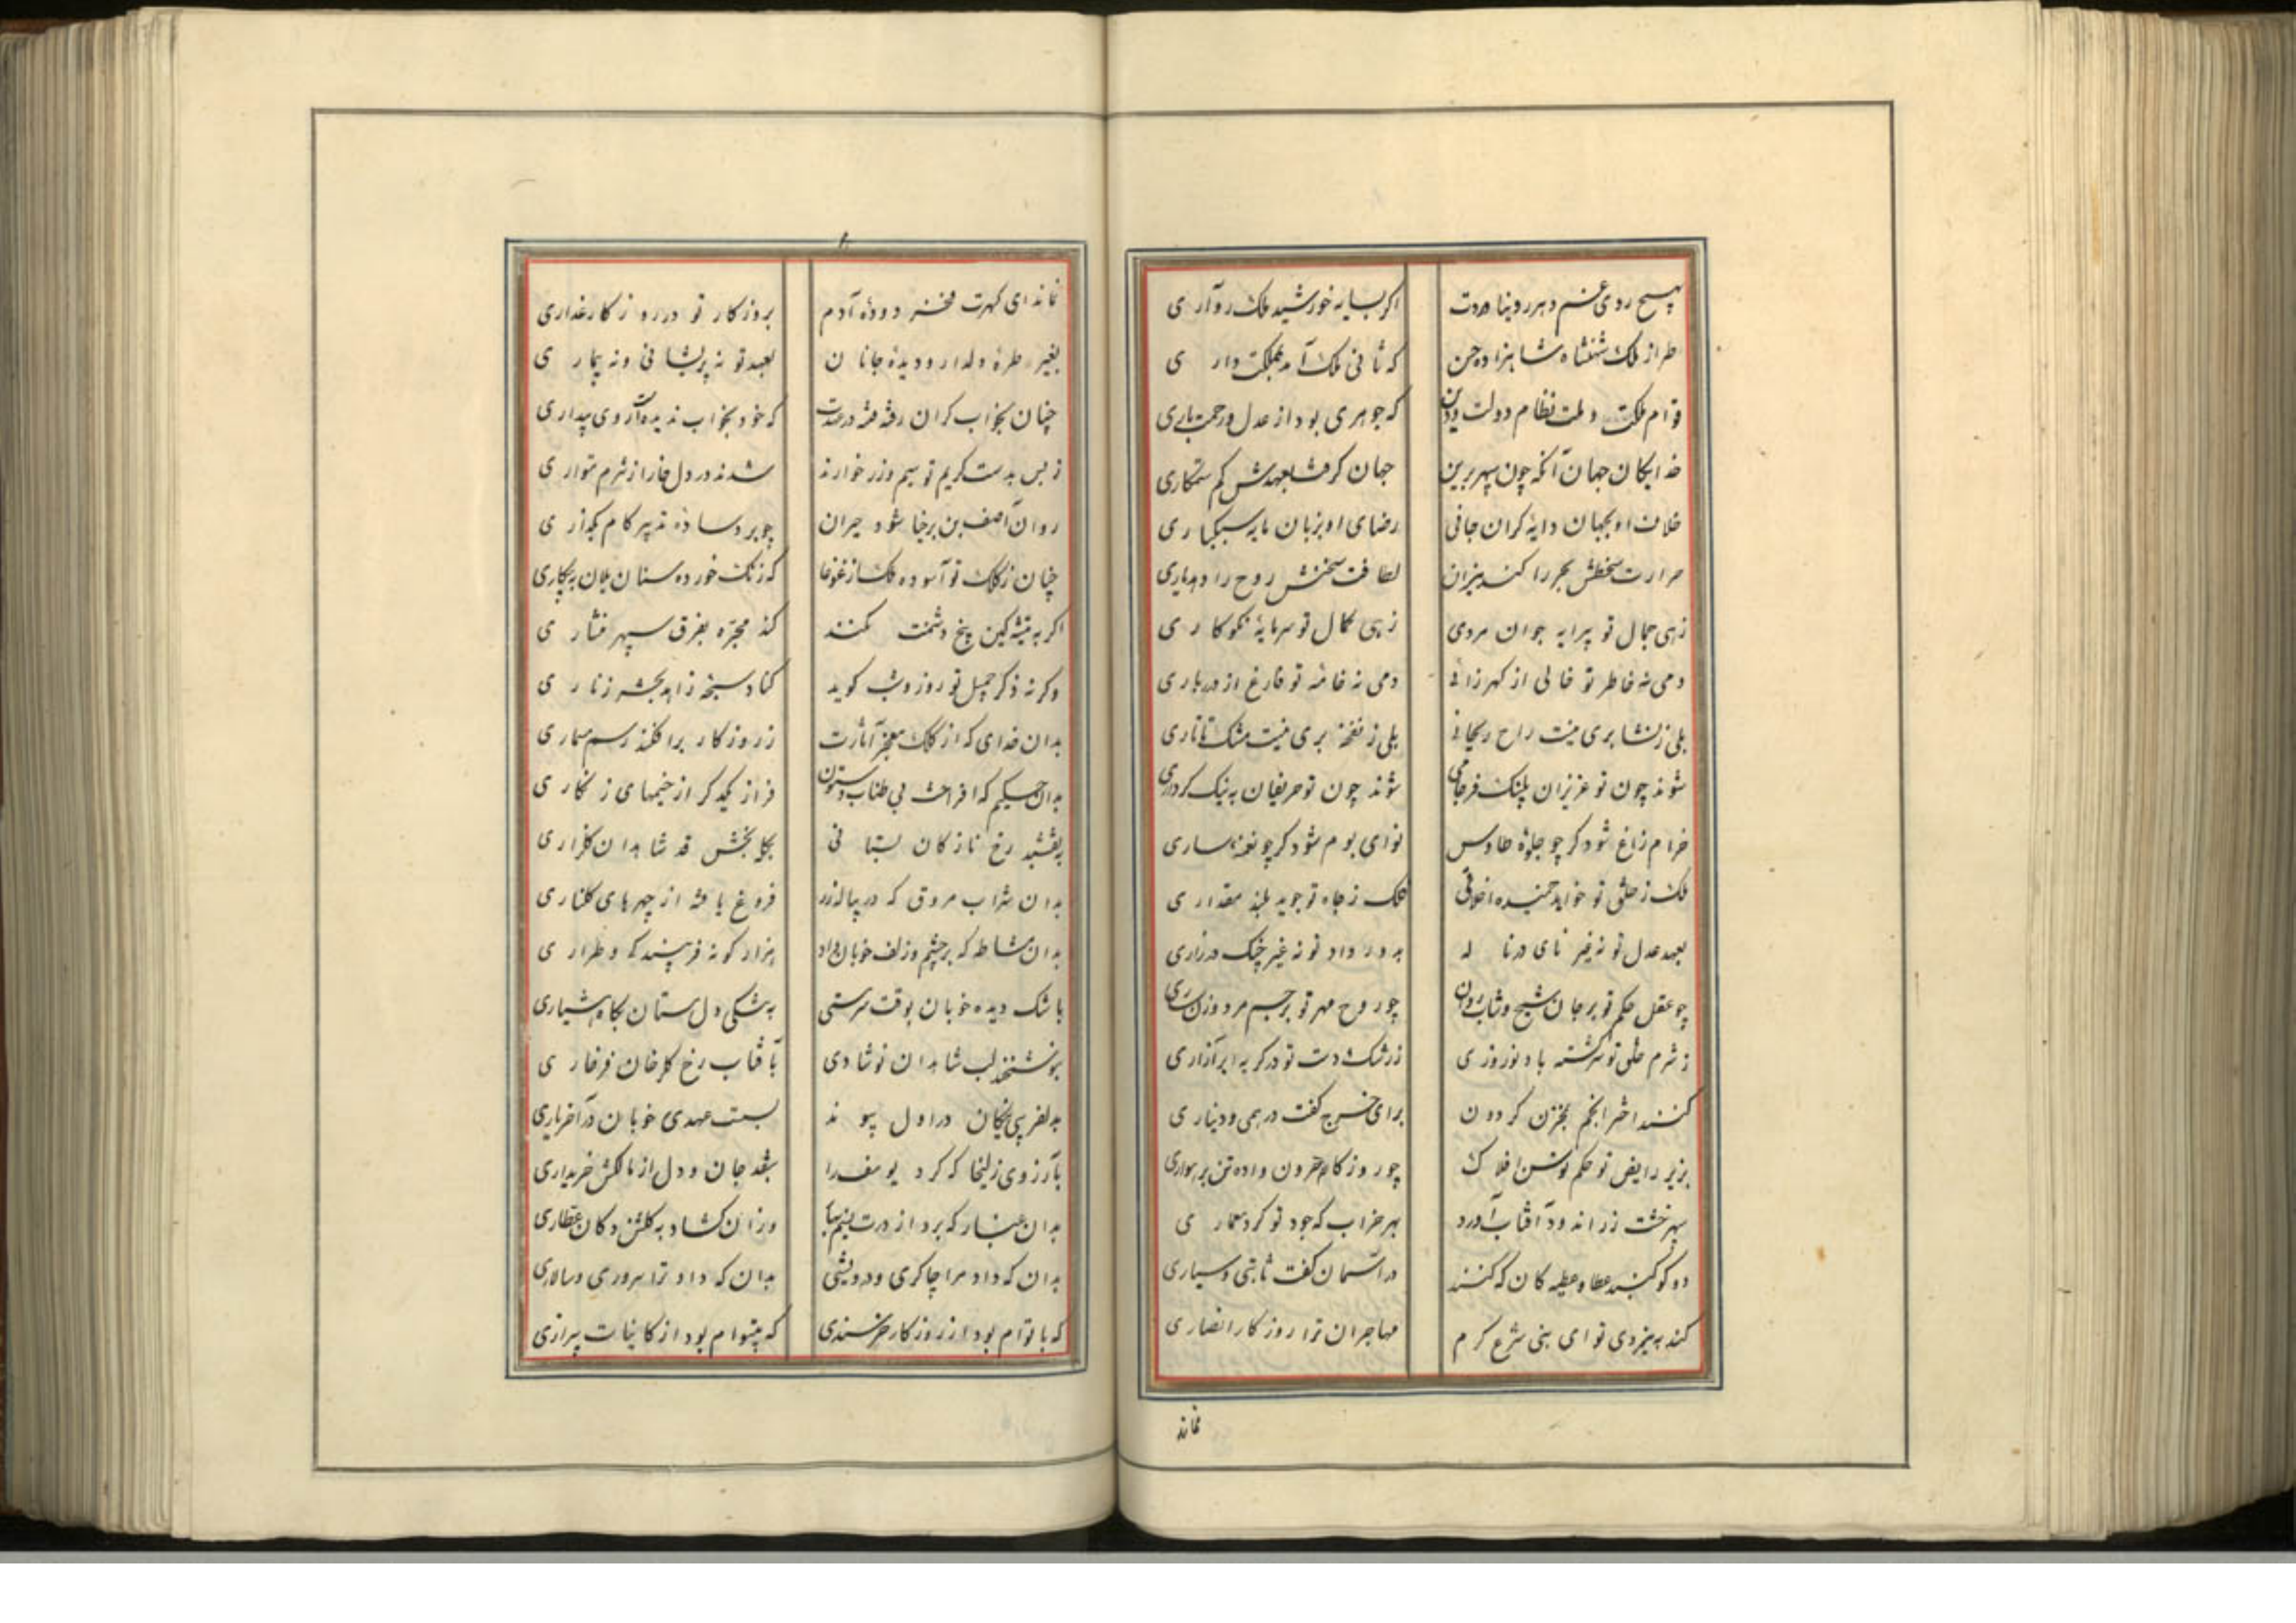 بهیچ روی غم دهر رو بنا ردت اکر بسایه خورشید ملک رو آری
طراز ملک شهنشاه شاهزاده حسن که ثانی ملک آمد بمملکت داری
قوام ملکت و ملت نظام دولت و دین که جوهری بود از عدل و رحمت باری
خدایکان جهان آنکه چون سپهر برین جهان کرفت بعهدش کم ستمکاری
خلاف او بجهان دایه کران جانی رضای او بزبان مایه سبکباری
حرارت سخطش بحر را کند نیران لطافت سخنش روح را دهد یاری
زهی جمال تو پیرایه جوان مردی زهی کمال تو سرمایه نکوکاری
دمی نه خاطر تو خالی از کهر زائی دمی نه خامه تو فارغ از درباری
بلی ز نشا بری نیست راح ریحانی بلی ز نفخه بری نیست مشک تاتاری
شوند چون تو عزیزان پلنک فرجامی شوند چون تو حریفان به نیک کرداری
خرام زاغ شود کر چو جلوه طاوس نوای بوم شود کر چو نغمه ساری
ملک ز خلق تو خواهد حمیده اخلاقی فلک ز جاه تو جوید بلند مقداری
بعهد عدل تو نه غیر نای در ناله بدور داد تو نه غیر چنک در زاری
چو عقل حکم تو بر جان شیخ و شاب روان چو روح مهر تو بر جسم مرد و زن ساری
ز شرم خلق تو سرکشته باد نوروزی ز رشک دست تو در کریه ابر آزاری
کنند اختر انجم بمخزن کردون برای خرج کفت درهمی و دیناری
بزیر رایض تو حکم توسن افلاک چو روز کام حرون داده تن برهواری
بهر خشت زر اندود آفتاب آورد بهر خراب که جود تو کرد معماری
دو کوکبند عطا و عطیه کان که کنند در آسمان کفت ثابتی و سیاری
کند به نیروی تو ای نبی شرع کرم مهاجران ترا روزکار انصاری
نماند
نماند ای کهرت مفخر دوده آدم بروزکار تو در روزکار غداری
بغیر طره دلدار و دیده جانان بعهد تو نه پریشانی و نه بیماری
چنان بخواب کران رفته فتنه در عهدت که خود بخواب ندیده است روی بیداری
ز بس بدست کریم تو سیم و زر خوارند شدند در دل خارا ز شرم متواری
روان آصف بن برخیا شود حیران چو بر وساده تدبیر کام بکذاری
چنان ز کلک تو آسوده ملک از غوغا که زنک خورده سنان یلان به بیکاری
اکر به تیشه کین بیخ دشمنت نکنند کند مجره بفرق سپهر منشاری
وکر نه ذکر جمیل تو روز و شب کوید کناد سبحه زاهد بحشر زناری
بدان خدای که از کلک معجز آثارت ز روزکار برافکند رسم بیماری
بدان حکیم که افراشت بی طناب و ستون فراز یکدکر از خیمهای زنکاری
بنقشبند رخ نازکان بستانی بجلابخش قد شاهدان کلزاری
بدان شراب مروق که در پیاله زر فروغ یافته از چهرهای کلناری
بدان مشاطه که بر چشم و زلف خوبان داد هزار کونه فریبندکی و طراری
باشک دیده خوبان بوقت سرمستی به مشکی دل مستان بکاه هشیاری
بنوشخند لب شاهدان نوشادی بآفتاب رخ کلرخان فرخاری
بدلفریبی نیکان در اول پیوند بسست عهدی خوبان در آخر یاری
بآرزوی زلیخا که کرد یوسف را بنقد جان و دل از مالکش خریداری
بدان غبار که برد از درت نسیم صبا وزان کشاد به کلشن دکان عطاری
بدان که داد مرا چاکری و درویشی بدان که داد ترا سروری و سالاری
که با توام بود از روزکار خرسندی که بیتوام بود از کاینات بیزاری